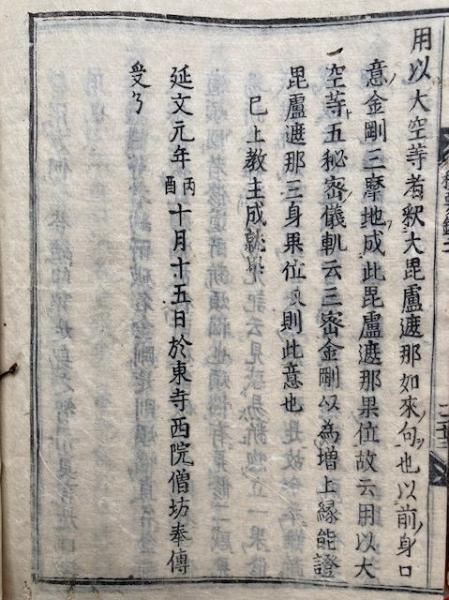 用以大空等者釈大毘盧遮那如來句也以前身口
意金剛三摩地成此毘盧遮那果位故云用以大
空等五秘密儀軌云三密金剛以為増上縁能證
毘盧遮那三身果位文則此意也
已上教主成就畢
延文元年丙酉十月十五日於東寺西院僧坊奉傳
受了